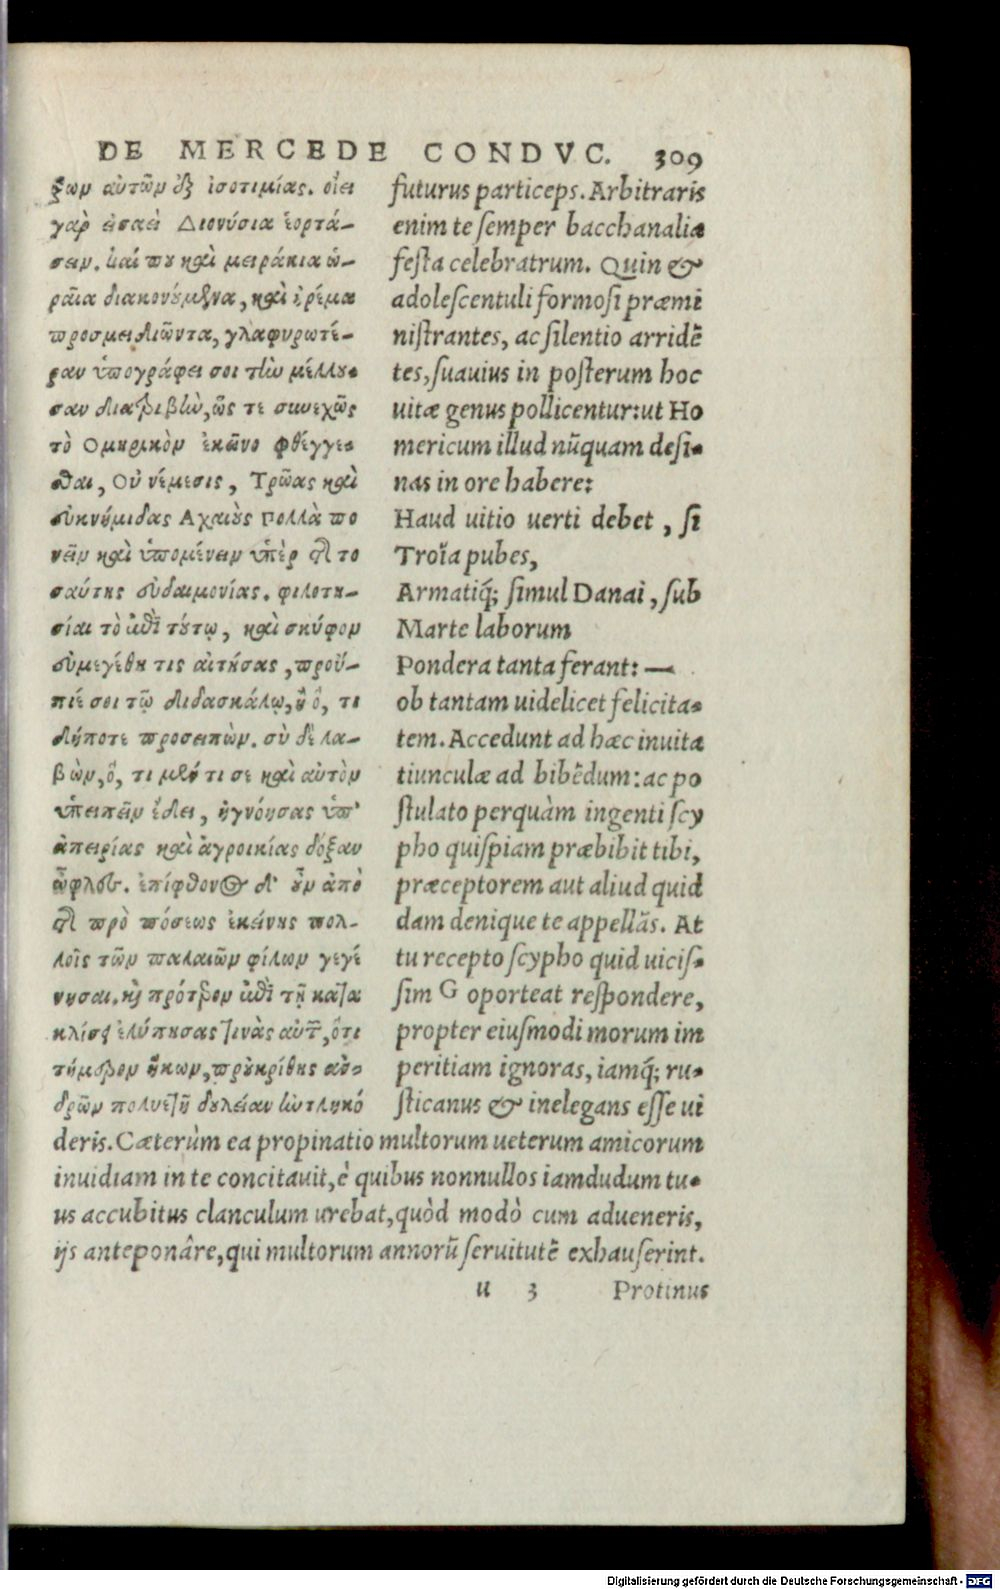 DE MERCEDE CONDVC. 309
ξων αὐτῶν ἐξ ἰσοτιμίας. οἴει
γὰρ εἰσαεὶ Διονύσια ἑορτά-
σειν. καί που καὶ μειράκια ὡ-
ραῖα διακονούμενα, καὶ ἠρέμα
προσμειδιῶντα, γλαφυρωτέ-
ραν ὑπογράφει σοι τὴν μέλλου-
σαν διατριβὴν, ὥς τε συνεχῶς
τὸ Ομηρικὸν ἐκεῖνο φθέγγε-
σθαι, Οὐ νέμεσις, Τρῶας καὶ
εὐκνήμιδας Αχαιοὺς Πολλὰ πο
νεῖν καὶ ὑπομένειν ὑπὲρ τῆς το
σαύτης εὐδαιμονίας. φιλοτη-
σίαι τὸ ἐπὶ τούτῳ, καὶ σκύφον
εὐμεγέθη τις αἰτήσας, προὔ-
πιέ σοι τῷ διδασκάλῳ, ἢ ὅ, τι
δήποτε προσειπών. σὺ δὲ λα-
βὼν, ὅ, τι μέν τι σε καὶ αὐτὸν
ὑπειπεῖν ἔδει, ἠγνόησας ὑπ'
ἀπειρίας καὶ ἀγροικίας δόξαν
ὦφλες. ἐπίφθονος δ' οὖν ἀπὸ
τῆς προπόσεως ἐκείνης πολ-
λοῖς τῶν παλαιῶν φίλων γεγέ
νησαι. καὶ πρότερον ἐπὶ τῇ κατα
κλίσει ἐλύπησας τινὰς αὐτῶν, ὅτι
τήμερον ἥκων, προὐκρίθης ἀν-
δρῶν πολυετῆ δουλείαν ἠντληκό
futurus particeps. Arbitraris
enim te semper bacchanalia
festa celebratrum. Quin &
adolescentuli formosi præmi
nistrantes, ac silentio arridē
tes, suauius in posterum hoc
uitæ genus pollicentur: ut Ho
mericum illud nūquam desi-
nas in ore habere:
Haud uitio uerti debet, si
Troïa pubes,
Armatiq́; simul Danai, sub
Marte laborum
Pondera tanta ferant: —
ob tantam uidelicet felicita-
tem. Accedunt ad hæc inuita
tiunculæ ad bibēdum: ac po
stulato perquàm ingenti scy
pho quispiam præbibit tibi,
præceptorem aut aliud quid
dam denique te appellās. At
tu recepto scypho quid uicis-
sim G oporteat respondere,
propter eiusmodi morum im
peritiam ignoras, iamq́; ru-
sticanus & inelegans esse ui
deris. Cæterùm ea propinatio multorum ueterum amicorum
inuidiam in te concitauit, è quibus nonnullos iamdudum tu-
us accubitus clanculum urebat, quòd modò cum adueneris,
ijs anteponâre, qui multorum annorū seruitutē exhauserint.
u 3 Protinus
Digitalisierung gefördert durch die Deutsche Forschungsgemeinschaft - DFG